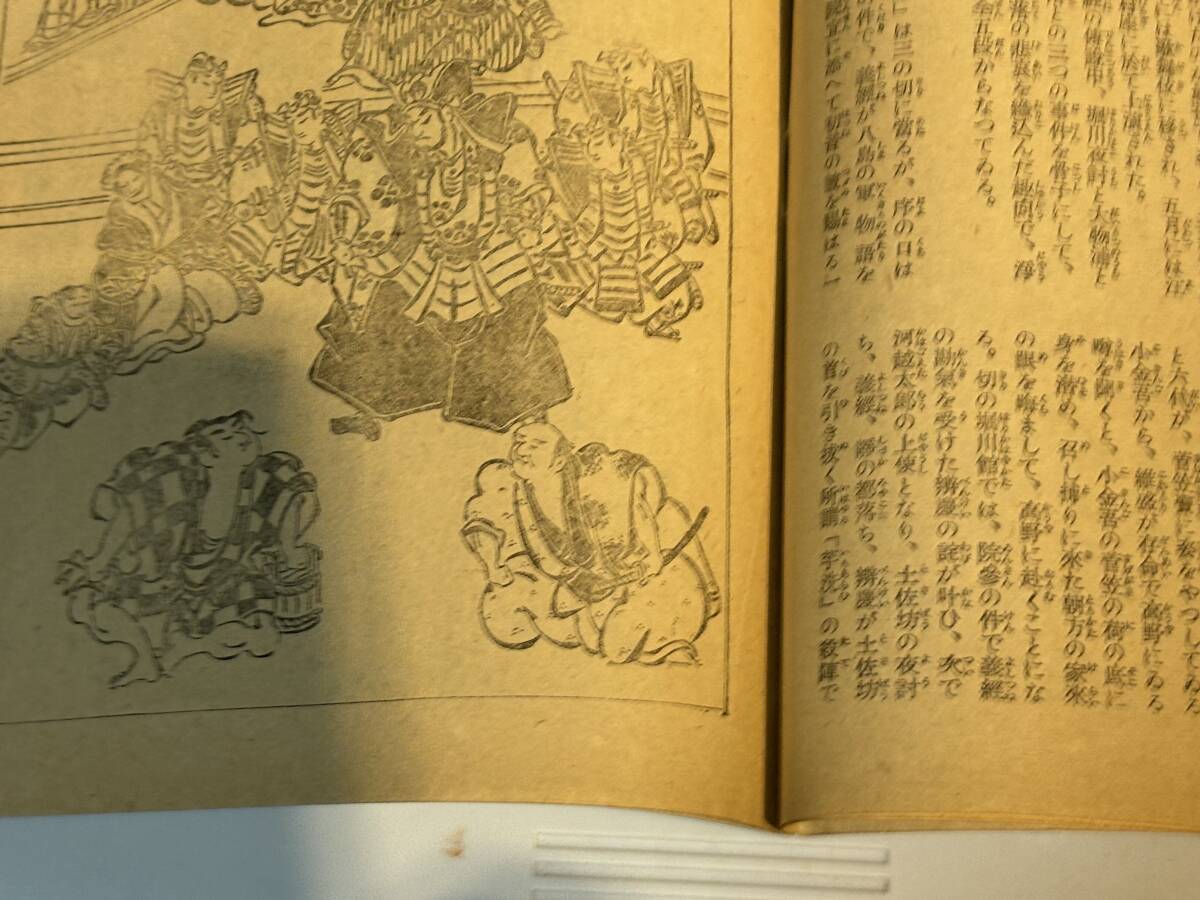 には歌舞伎に移され、五月には江
村座に於て上演された。
經の傳說中、堀川夜討と大物浦と
との三つの事件を骨子にして、
落の悲哀を織込んだ趣向で、淨
全五段からなつてゐる。
」は三の切に當るが、序の口は
の件で、義經が八島の軍物語を
に添へて初音の鼓を賜はる」
と六代が、菅笠賣に姿をやつしてゐる
小金吾から、維盛が存命で高野にゐる
噂を聞くと、小金吾の菅笠の荷の底に
身を潜め、召し捕りに來た朝方の家來
の眼を晦まして、高野に赴くことにな
る。切の堀川館では、院參の件で義經
の勘氣を受けた辨慶の詫が叶ひ、次で
河越太郎の上使となり、土佐坊の夜討
ち、義經、靜の都落ち、辨慶が土佐坊
の首を引き拔く所謂「芋洗」の殺陣で